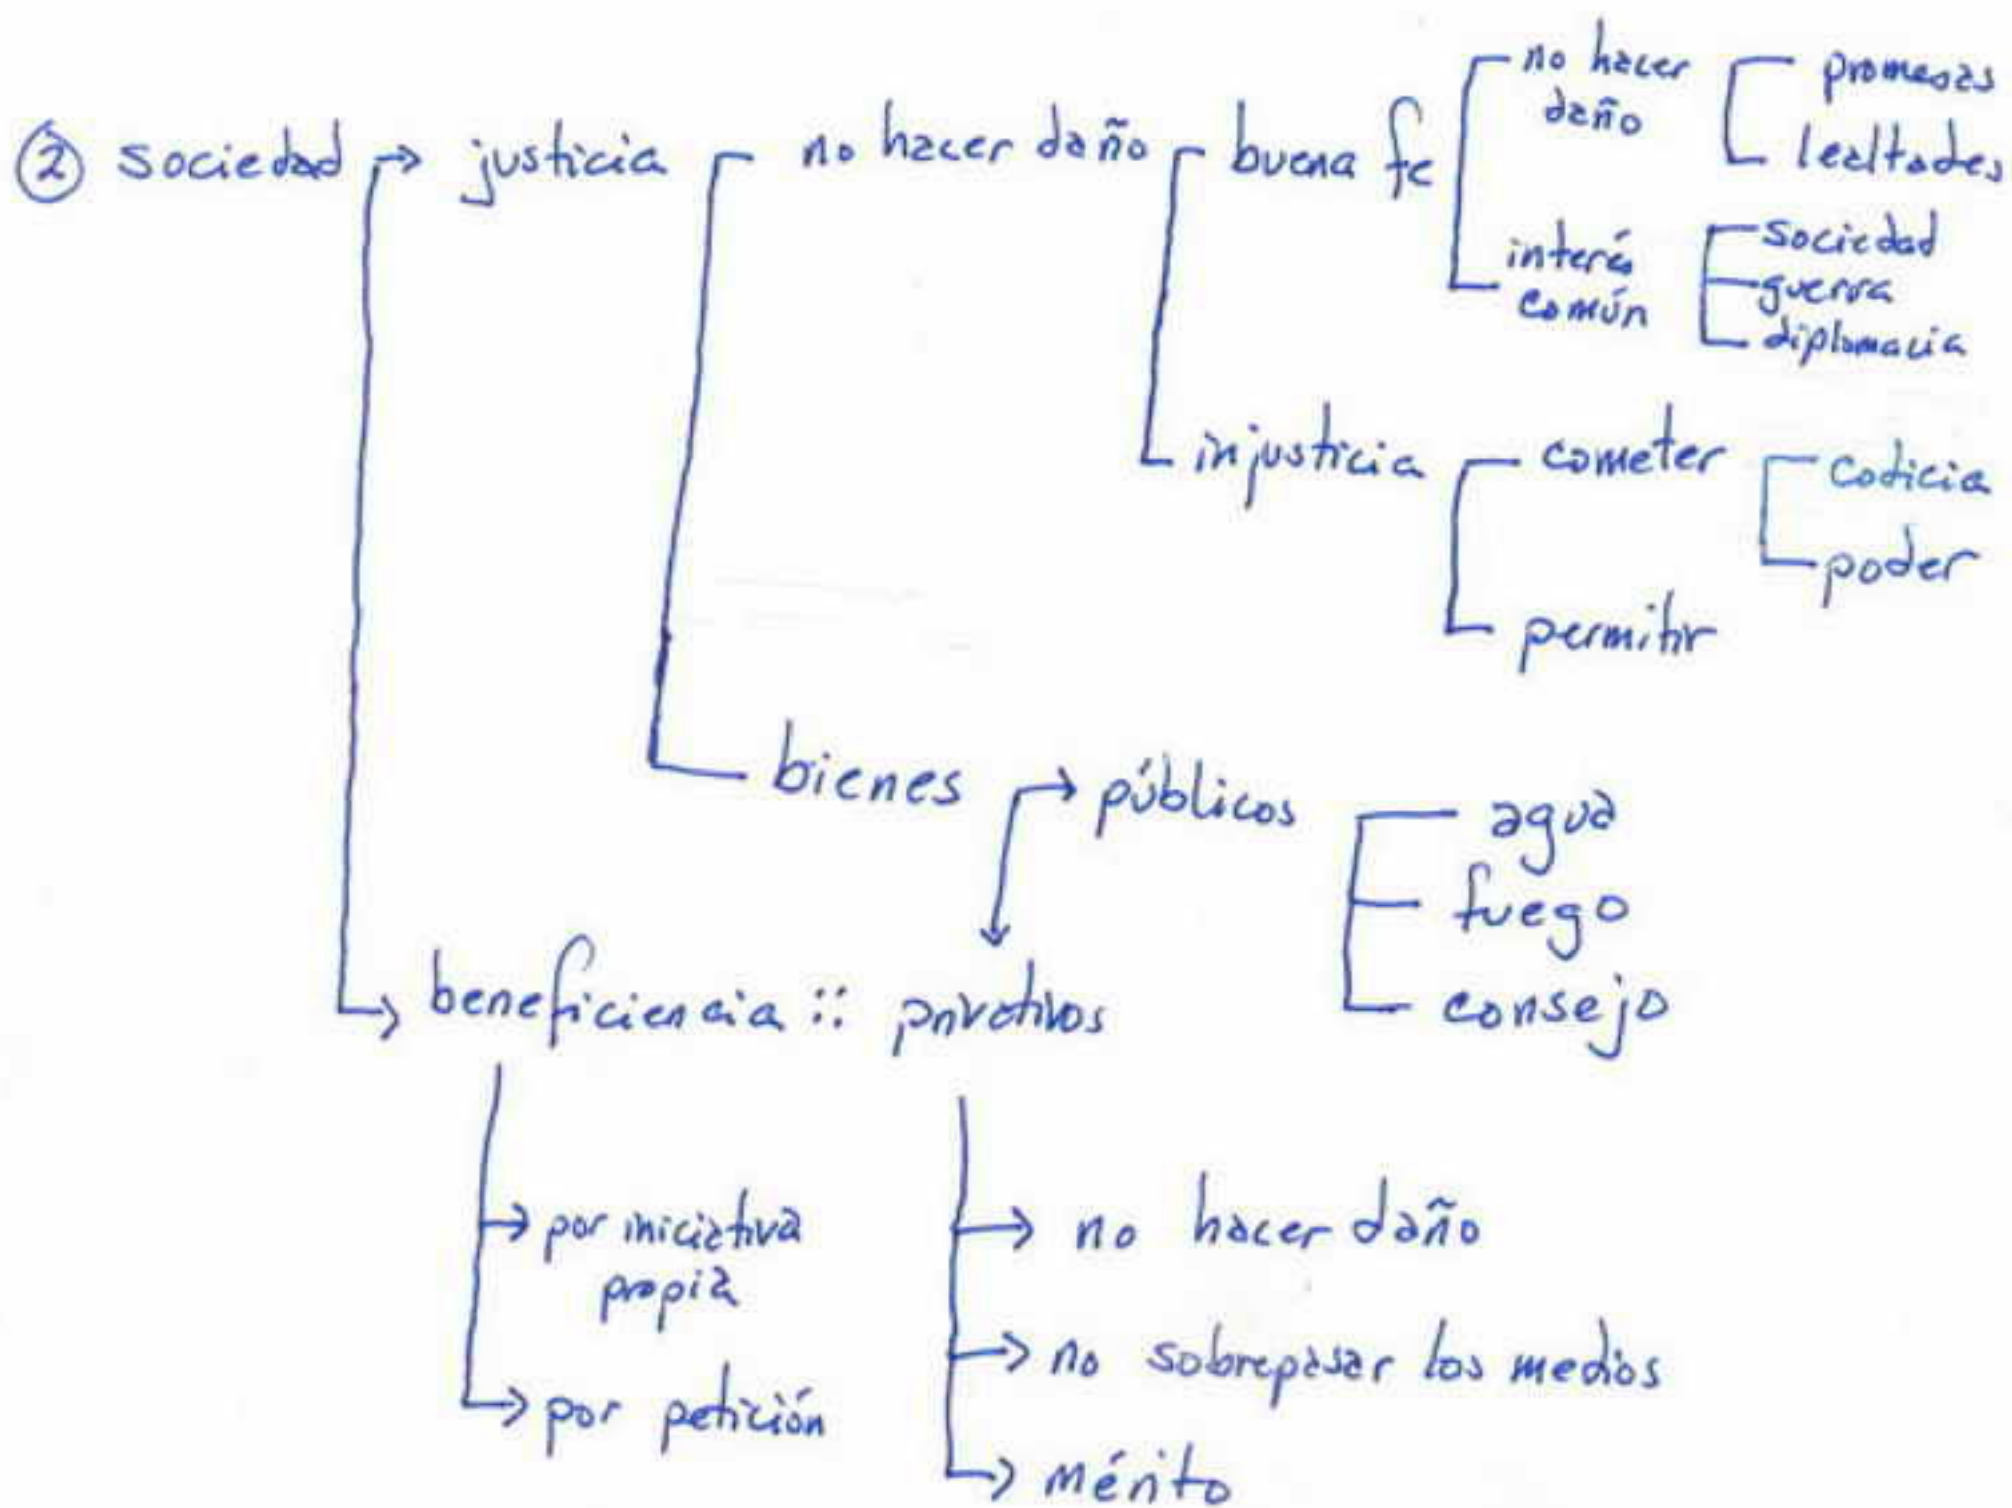 ② sociedad → justicia no hacer daño buena fe
no hacer
daño
promesas
lealtades
interés
común
sociedad
guerra
diplomacia
injusticia
cometer
codicia
poder
permitir
bienes → públicos
agua
fuego
consejo
beneficiencia :: privativos
→ por iniciativa
propia
→ por petición
→ no hacer daño
→ no sobrepasar los medios
→ mérito